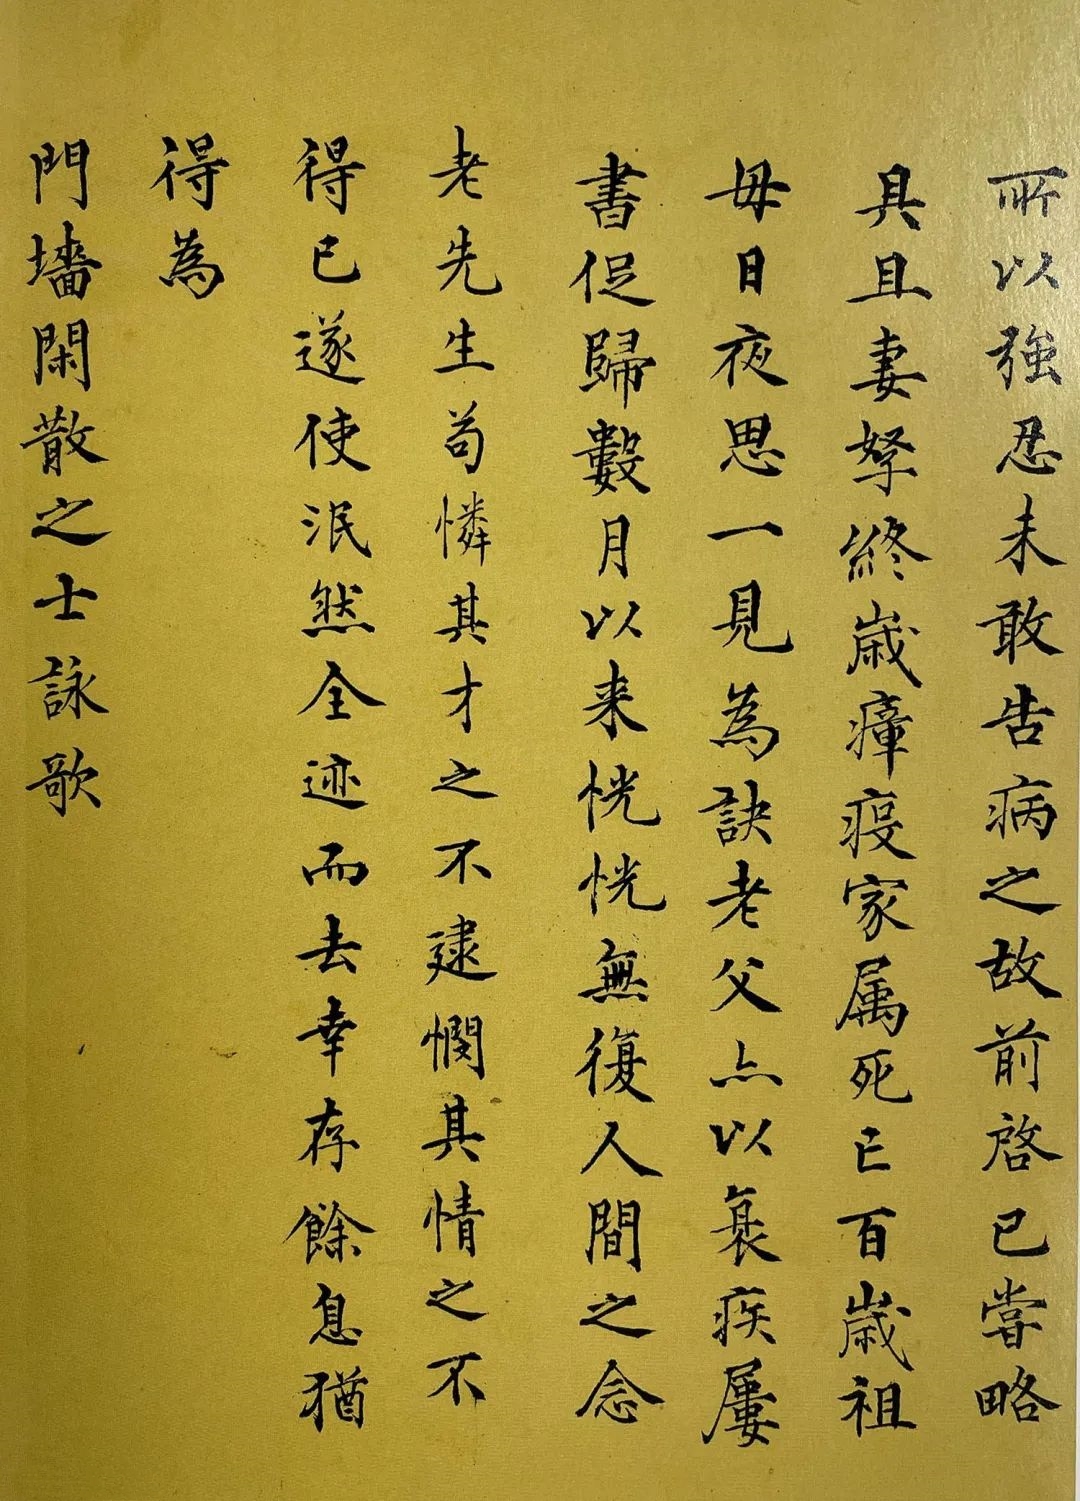 所以強忍未敢告病之故前啓已嘗略
具且妻孥終歲瘴疫家属死亡百歲祖
母日夜思一見為訣老父亦以衰疾屢
書促歸數月以来恍恍無復人間之念
老先生苟憐其才之不逮憫其情之不
得已遂使泯然全迹而去幸存餘息猶
得為
門墻閑散之士詠歌